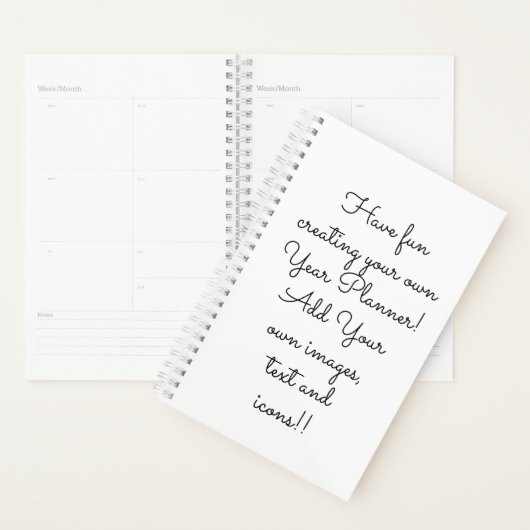 Week/Month:
Week/Month:
Notes
Have fun
creating your own
Year Planner!
Add Your
own images,
text and
icons!!